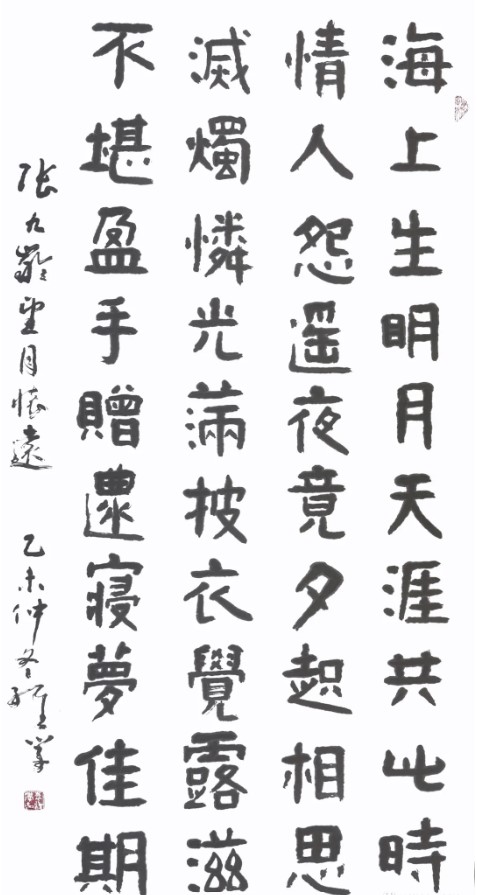 海上生明月天涯共此時
情人怨遥夜竟夕起相思
滅燭憐光滿披衣覺露滋
不堪盈手贈還寢夢佳期
張九齡望月懷遠 乙未仲冬